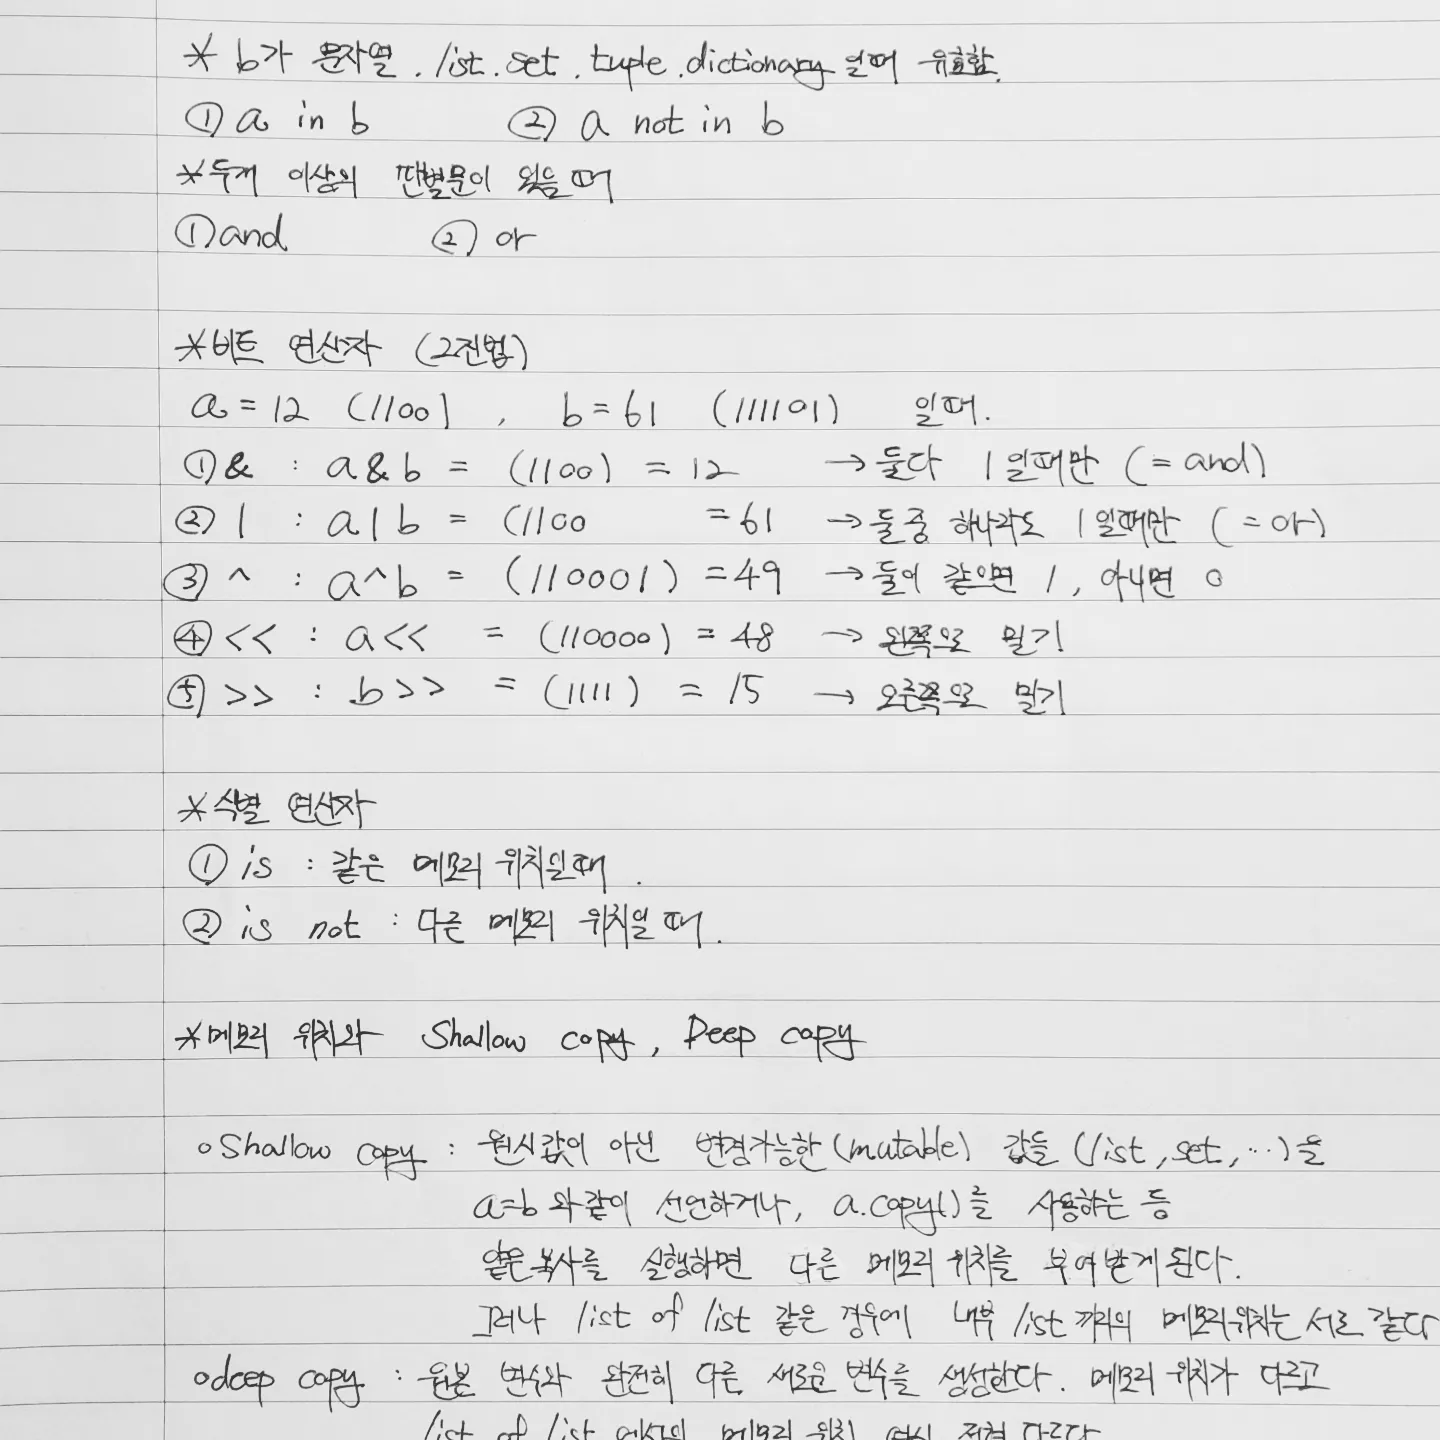 * b가 문자열, list, set, tuple, dictionary 일때 유효함.
① a in b ② a not in b
* 두개 이상의 판별문이 있을 때
① and ② or
* 비트 연산자 (2진법)
a = 12 (1100) , b = 61 (111101) 일때.
① & : a & b = (1100) = 12 → 둘다 1 일때만 (= and)
② | : a | b = (1100 = 61 → 둘중 하나라도 1 일때만 (= or)
③ ^ : a ^ b = (110001) = 49 → 둘이 같으면 1, 아니면 0
④ << : a << = (110000) = 48 → 왼쪽으로 밀기
⑤ >> : b >> = (1111) = 15 → 오른쪽으로 밀기
* 식별 연산자
① is : 같은 메모리 위치일때.
② is not : 다른 메모리 위치일 때.
* 메모리 위치와 Shallow copy, Deep copy
o Shallow copy : 원시값이 아닌 변경가능한 (mutable) 값들 (list, set, ...)을
a=b 와 같이 선언하거나, a.copy()를 사용하는 등
얕은복사를 실행하면 다른 메모리 위치를 부여받게 된다.
그러나 list of list 같은 경우에 내부 list 끼리의 메모리위치는 서로 같다
o deep copy : 원본 변수와 완전히 다른 새로운 변수를 생성한다. 메모리 위치가 다르고
list of list 메모리 위치 역시 전혀 다르다